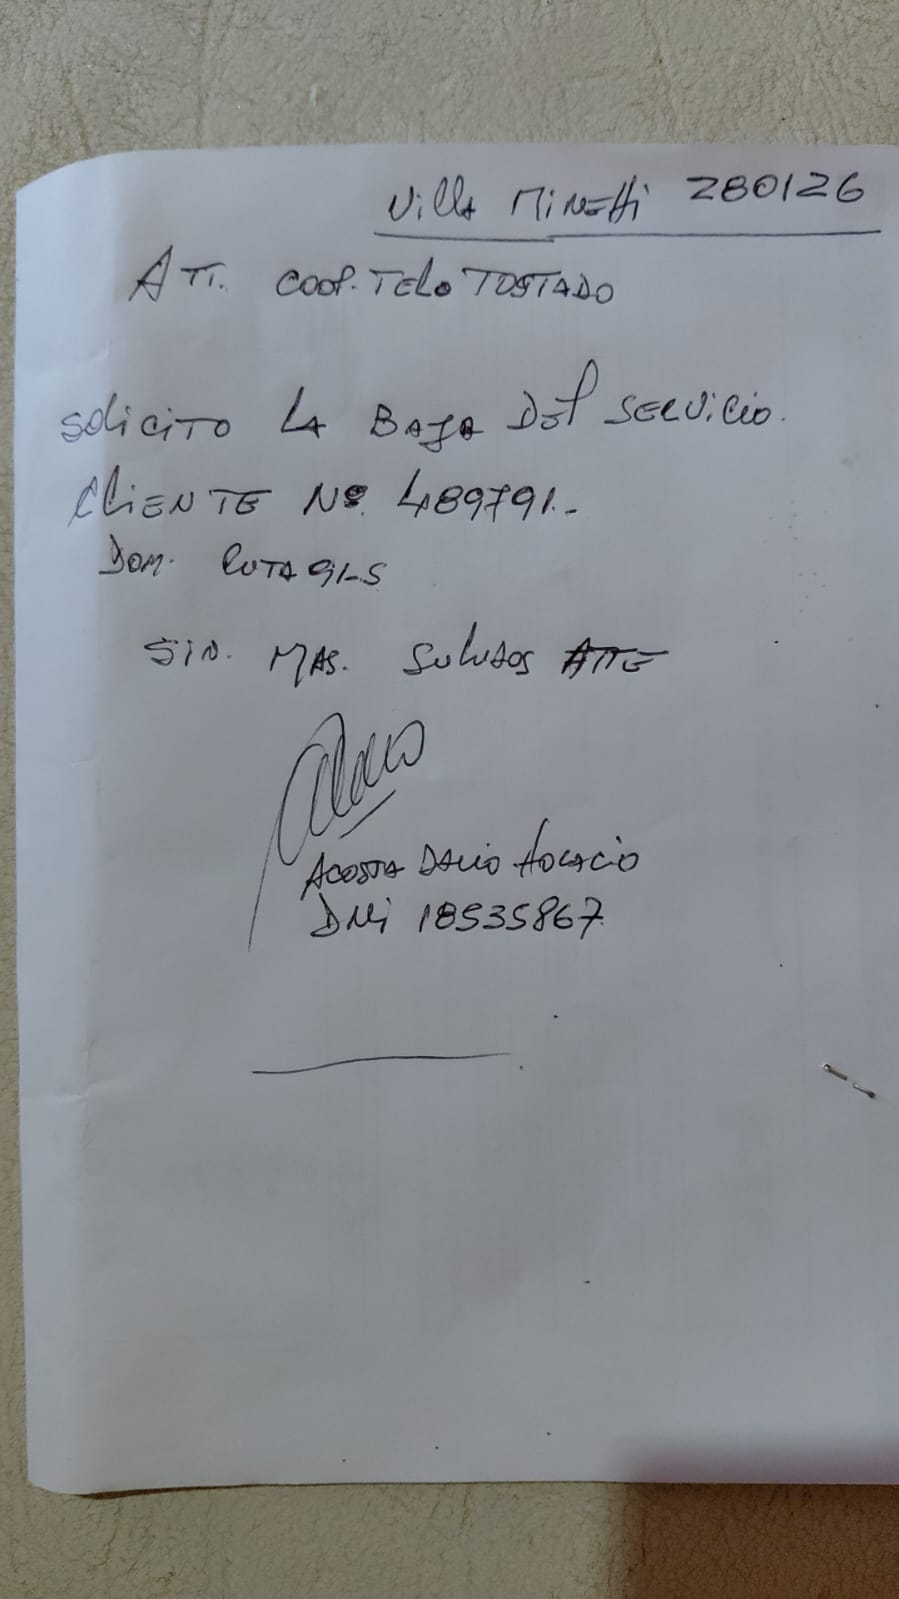 Villa Minetti 280126
ATT. COOP. TELO TOSTADO
SOLICITO LA BAJA DEL SERVICIO.
CLIENTE Nº 489791.-
DOM. RUTA 91-S
SIN. MAS. SALUDOS ATTE
ACOSTA DARIO HORACIO
DNI 18535867